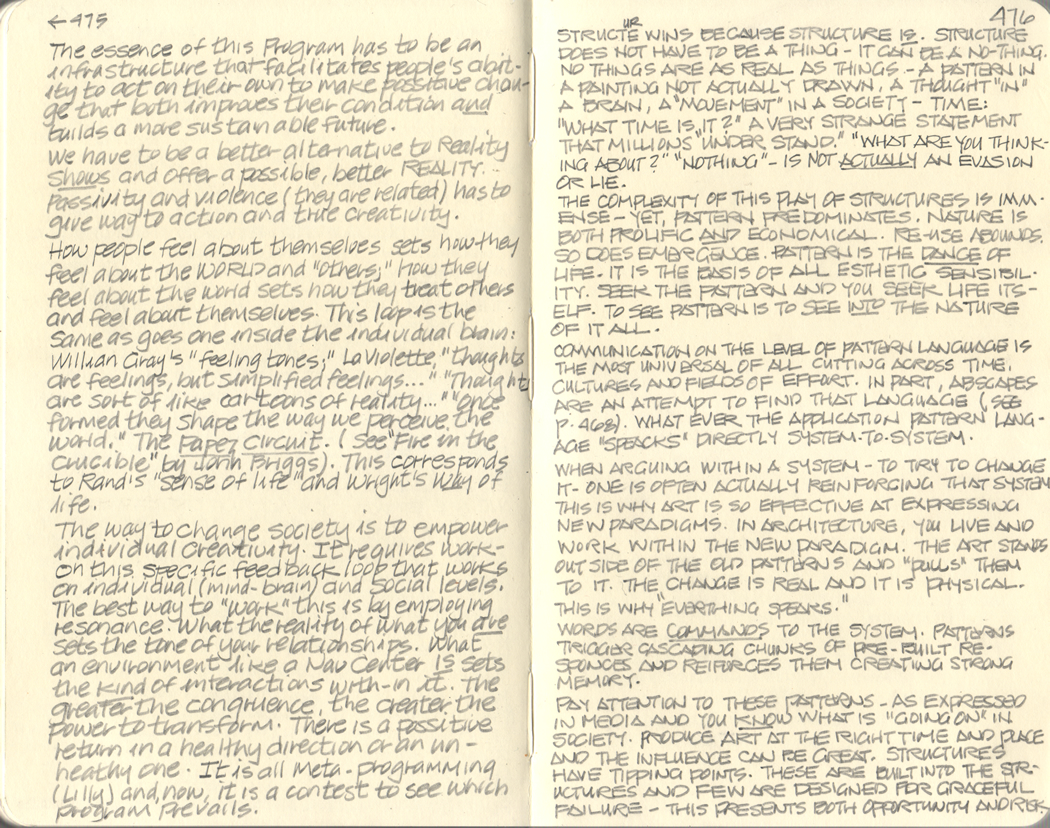 ←475
The essence of this Program has to be an
infrastructure that facilitates people's abil-
ity to act on their own to make possitive chan-
ge that both improves their condition and
builds a more sustainable future.
We have to be a better alternative to Reality
Shows and offer a possible, better REALITY.
Passivity and violence (they are related) has to
give way to action and true creativity.
How people feel about themselves sets how they
feel about the WORLD and "others;" how they
feel about the world sets how they treat others
and feel about themselves. This loop is the
same as goes one inside the individual brain:
William Gray's "feeling tones;" La Violette, "Thoughts
are feelings, but simplified feelings..." "Thoughts
are sort of like cartoons of reality..." "Once
formed they shape the way we perceive the
world." The Papez Circuit. (See "Fire in the
Crucible" by John Briggs). This corresponds
to Rand's "sense of life" and Wright's way of
life.
The way to change society is to empower
individual creativity. It requires work-
on this specific feedback loop that works
on individual (mind-brain) and social levels.
The best way to "work" this is by employing
resonance. What the reality of what you are
sets the tone of your relationships. What
an environment like a Nav Center IS sets
the kind of interactions with-in it. The
greater the congruence, the creater the
power to transform. There is a possitive
return in a healthy direction or an un-
heathy one. It is all Meta-programming
(Lilly) and, now, it is a contest to see which
program prevails.
476
STRUCTEUR WINS BECAUSE STRUCTURE IS. STRUCTURE
DOES NOT HAVE TO BE A THING - IT CAN BE A NO-THING.
NO THINGS ARE AS REAL AS THINGS. - A PATTERN IN
A PAINTING NOT ACTUALLY DRAWN, A THOUGHT "IN"
A BRAIN, A "MOVEMENT" IN A SOCIETY - TIME:
"WHAT TIME IS "IT?" A VERY STRANGE STATEMENT
THAT MILLIONS "UNDER STAND." "WHAT ARE YOU THINK-
ING ABOUT?" "NOTHING" - IS NOT ACTUALLY AN EVASION
OR LIE.
THE COMPLEXITY OF THIS PLAY OF STRUCTURES IS IMM-
ENSE - YET, PATTERN PREDOMINATES. NATURE IS
BOTH PROLIFIC AND ECONOMICAL. RE-USE ABOUNDS.
SO DOES EMERGENCE. PATTERN IS THE DANCE OF
LIFE. IT IS THE BASIS OF ALL ESTHETIC SENSIBIL-
ITY. SEEK THE PATTERN AND YOU SEEK LIFE ITS-
ELF. TO SEE PATTERN IS TO SEE INTO THE NATURE
OF IT ALL.
COMMUNICATION ON THE LEVEL OF PATTERN LANGUAGE IS
THE MOST UNIVERSAL OF ALL CUTTING ACROSS TIME,
CULTURES AND FIELDS OF EFFORT. IN PART, ABSCAPES
ARE AN ATTEMPT TO FIND THAT LANGUAGE (SEE
P. 468). WHAT EVER THE APPLICATION PATTERN LANG-
AGE "SPEACKS" DIRECTLY SYSTEM-TO-SYSTEM.
WHEN ARGUING WITHIN A SYSTEM - TO TRY TO CHANGE
IT - ONE IS OFTEN ACTUALLY REINFORCING THAT SYSTEM
THIS IS WHY ART IS SO EFFECTIVE AT EXPRESSING
NEW PARADIGMS. IN ARCHITECTURE, YOU LIVE AND
WORK WITHIN THE NEW PARADIGM. THE ART STANDS
OUT SIDE OF THE OLD PATTERNS AND "PULLS" THEM
TO IT. THE CHANGE IS REAL AND IT IS PHYSICAL.
THIS IS WHY "EVERTHING SPEAKS."
WORDS ARE COMMANDS TO THE SYSTEM. PATTERNS
TRIGGER CASCADING CHUNKS OF PRE-BUILT RE-
SPONCES AND REIFORCES THEM CREATING STRONG
MEMORY.
PAY ATTENTION TO THESE PATTERNS - AS EXPRESSED
IN MEDIA AND YOU KNOW WHAT IS "GOING ON" IN
SOCIETY. PRODUCE ART AT THE RIGHT TIME AND PLACE
AND THE INFLUENCE CAN BE GREAT. STRUCTURES
HAVE TIPPING POINTS. THESE ARE BUILT INTO THE STR-
UCTURES AND FEW ARE DESIGNED FOR GRACEFUL
FAILURE - THIS PRESENTS BOTH OPPORTUNITY AND RISK.